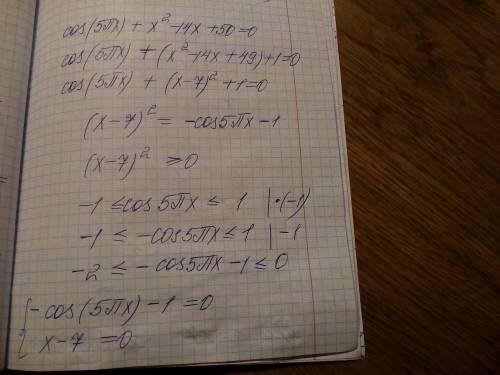 cos(5πx) + x² -14x +50=0
cos(5πx) + (x² -14x + 49)+1=0
cos(5πx) + (x-7)² +1=0
(x-7)² = -cos5πx -1
(x-7)² ≥0
-1 ≤ cos5πx ≤ 1 |·(-1)
-1 ≤ -cos5πx ≤ 1 |-1
-2 ≤ -cos5πx -1 ≤ 0
{ -cos(5πx) -1 =0
x-7 =0